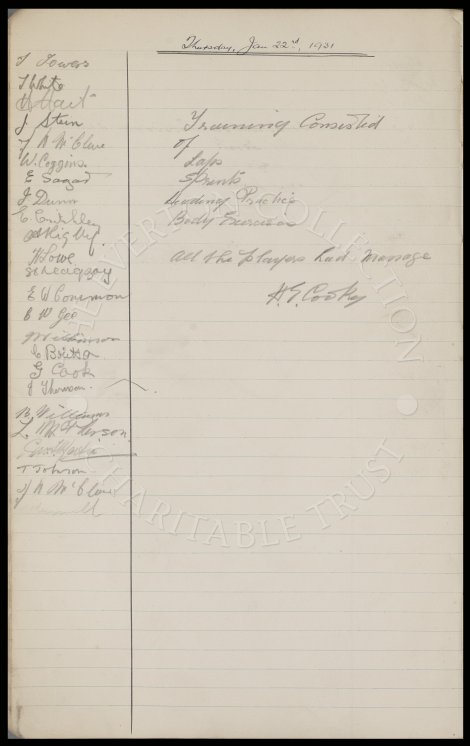 Thursday, Jan 22nd, 1931
J Towers
T White
J Stein
J H McClure
W. Coggins
E Sagar
J Dunn
E Critchley
H Lowe
E W Common
E W Gee
J Wilkinson
C Britton
G Cook
J Thomson
B. Williams
L. McPherson
T Johnson
J H McClure
Training Consisted
of
Laps
Sprints
Heading Practice
Body Exercises
All the players had Massage
H. E. Cooke
THE EVERTON COLLECTION
CHARITABLE TRUST